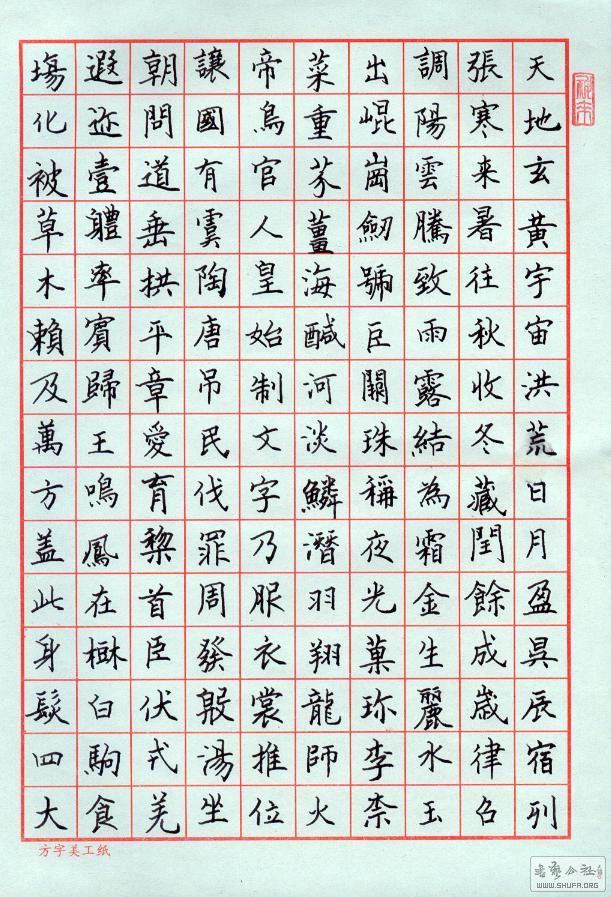 天地玄黃宇宙洪荒日月盈昃辰宿列
張寒来暑往秋收冬藏閏餘成歲律召
調陽雲騰致雨露結為霜金生麗水玉
出崐崗劒號巨闕珠稱夜光菓珎李柰
菜重芥薑海鹹河淡鱗潛羽翔龍師火
帝鳥官人皇始制文字乃服衣裳推位
讓國有虞陶唐吊民伐罪周發殷湯坐
朝問道垂拱平章愛育黎首臣伏戎羌
遐迩壹體率賓歸王鳴鳳在樹白駒食
場化被草木賴及萬方蓋此身髮四大
方字美工纸
WWW.SHUFA.ORG